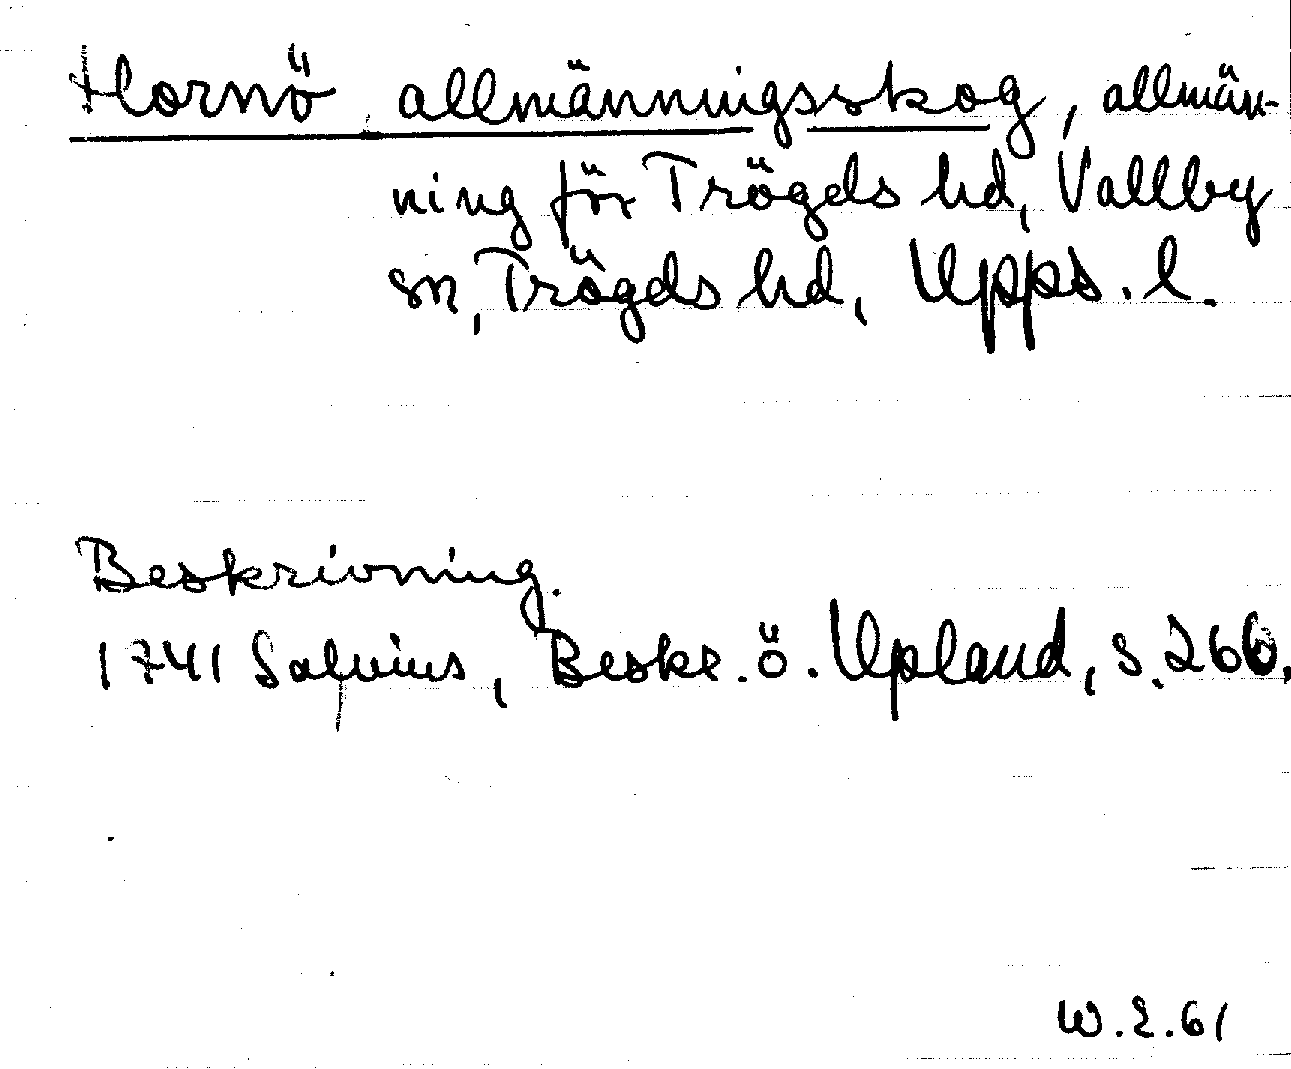 Hornö allmänningsskog, allmän-
ning för Trögds hd, Vallby
sn, Trögds hd, Upps. l.
Beskrivning.
1741 Salvius, Beskr. ö. Upland, s. 266.
W.E.61